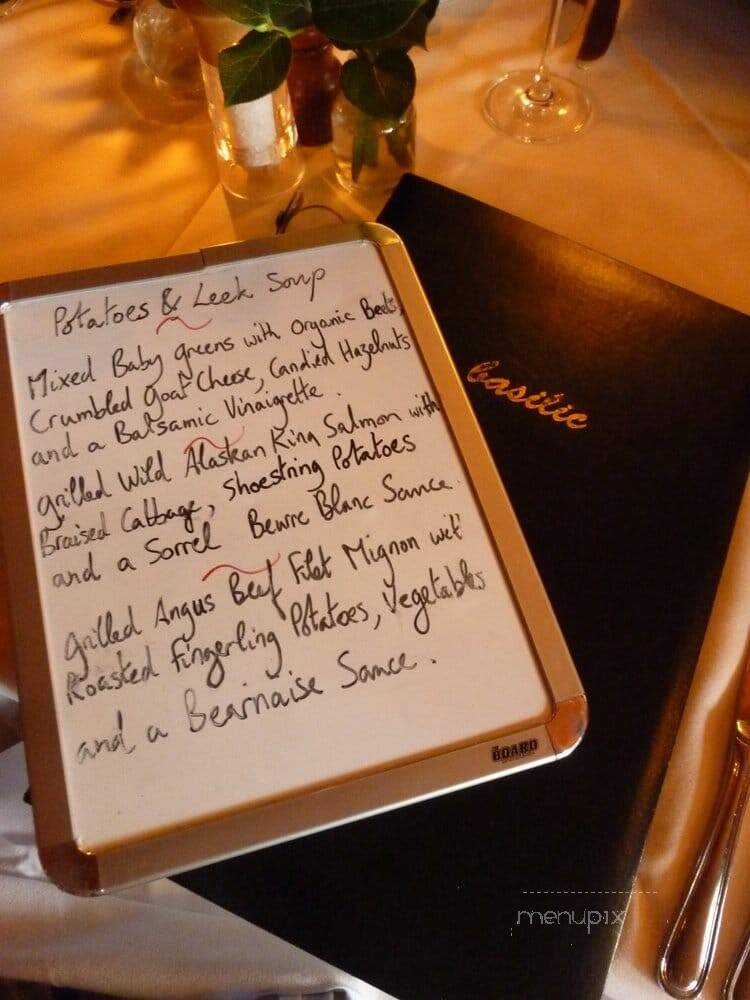 Potatoes & Leek Soup
Mixed Baby greens with Organic Beets,
Crumbled goat Cheese, Candied Hazelnuts
and a Balsamic Vinaigrette.
grilled Wild Alaskan King Salmon with
Braised Cabbage, Shoestring Potatoes
and a Sorrel Beurre Blanc Sauce.
grilled Angus Beef Filet Mignon wit
Roasted Fingerling Potatoes, Vegetables
and a Bearnaise Sauce.
THE BOARD
basilic
menupix